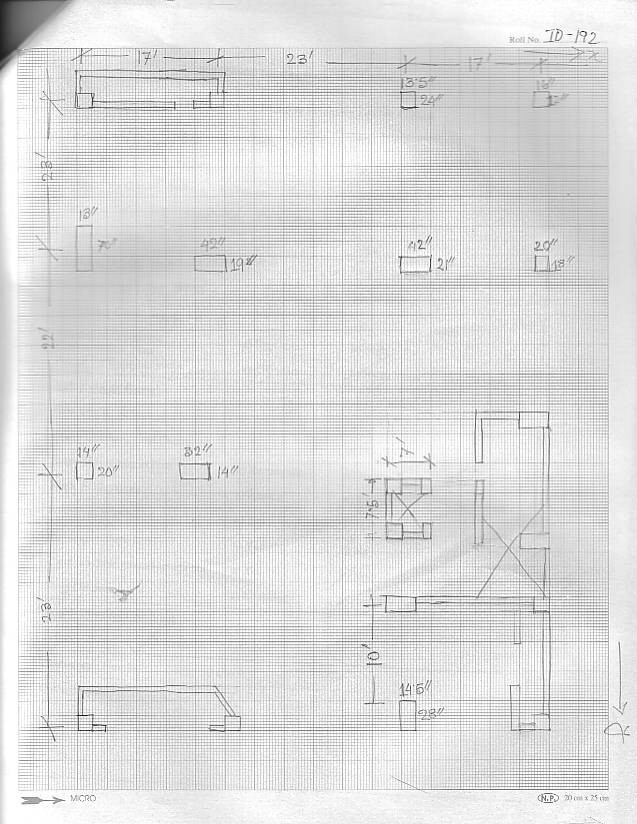 Roll No. ID-192
17' 23' 17' x
13.5" 24"
23'
13"
42" 19"
42" 21"
20" 18"
22'
14" 20"
32" 14"
7'
7.5'
23'
10'
14.5" 28"
MICRO
N.P. 20 cm x 25 cm